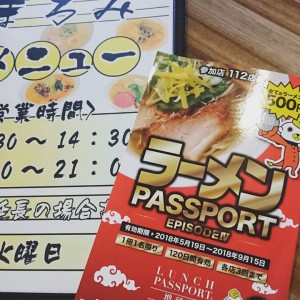 まるみ
メニュー
営業時間〉
30～14：30
0～21：0
延長の場合
火曜日
参加店 112店
全てのラーメン
500
ラーメン
PASSPORT
EPISODE Ⅳ
有効期限▶2018年5月19日～2018年9月15日
1冊1名限り
120日間有効
各店3回まで
LUNCH
PASSPORT